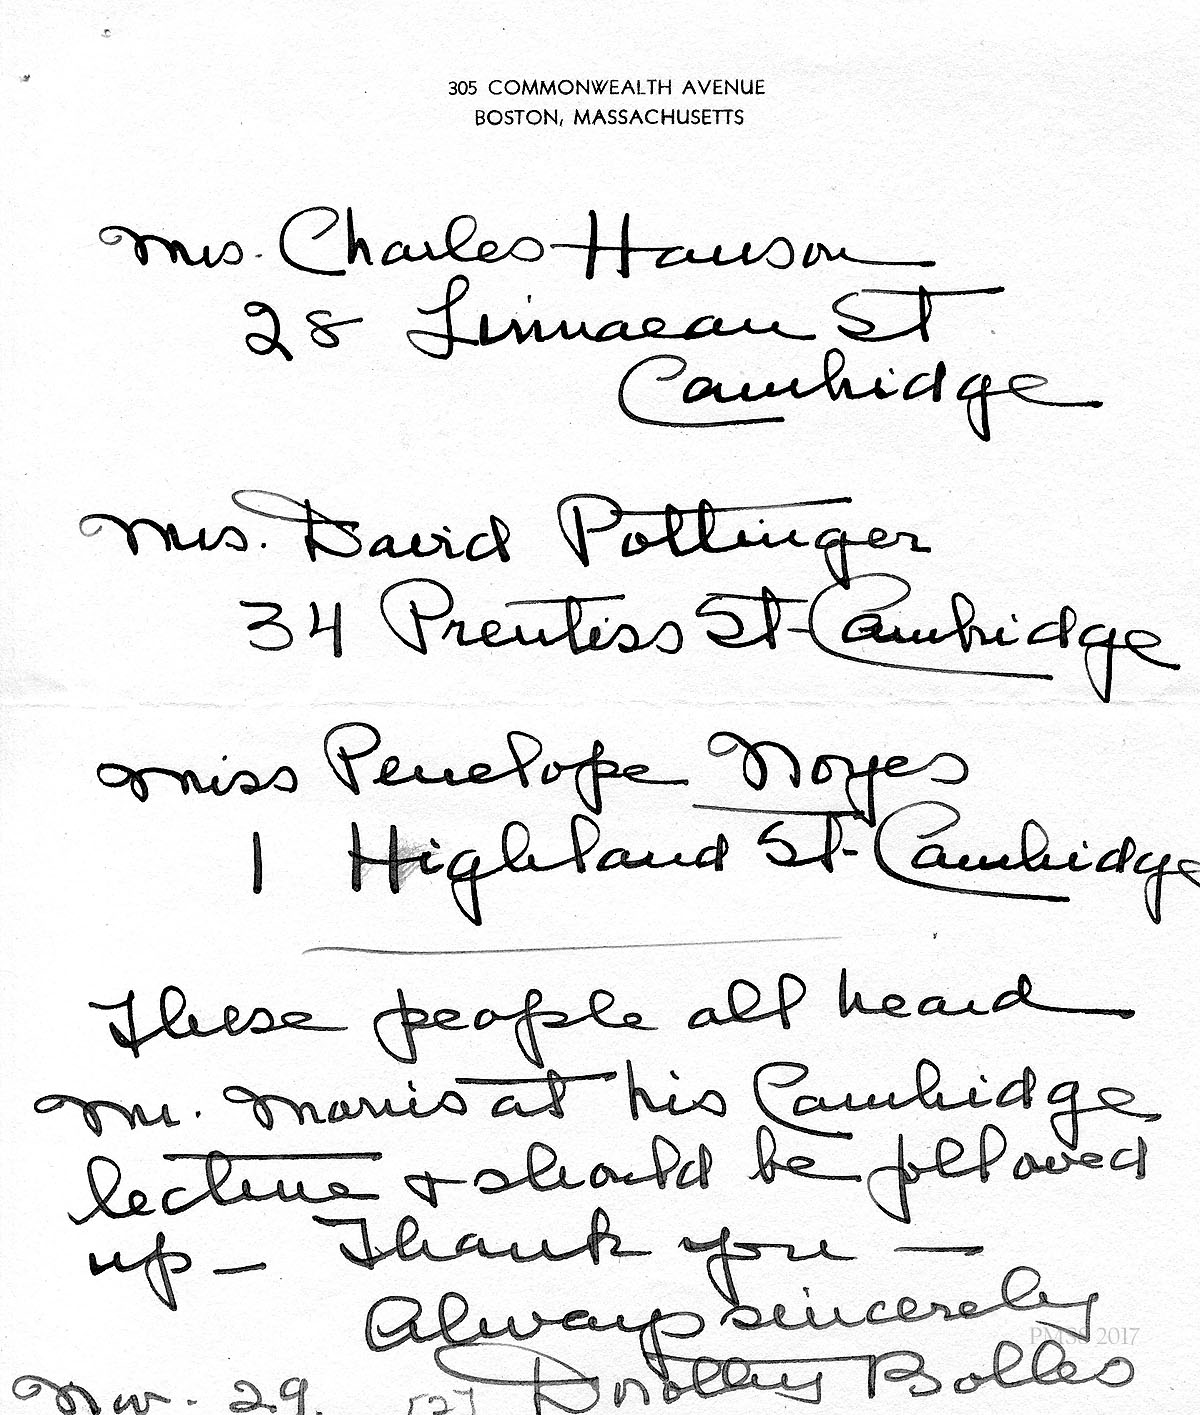 305 COMMONWEALTH AVENUE
BOSTON, MASSACHUSETTS
Mrs. Charles Hanson
28 Linnaean St
Cambridge
Mrs. David Pottinger
34 Prentiss St - Cambridge
Miss Penelope Noyes
1 Highland St - Cambridge
These people all heard
Mr. Morris at his Cambridge
lecture + should be followed
up - Thank you -
Always sincerely
PMSS 2017
Dorothy Bolles
Nov. 29. [2]